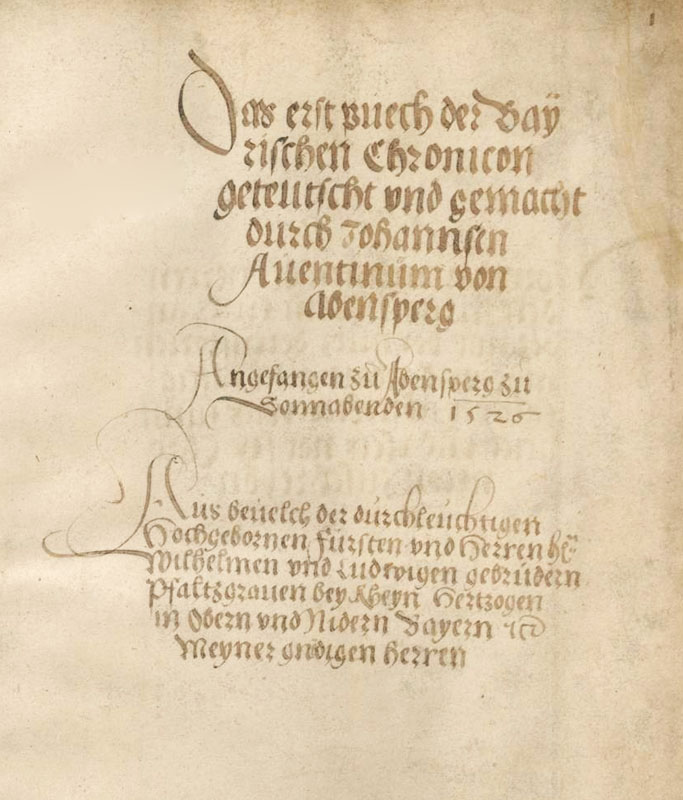 1
Das erst puech der Baÿ
rischen Chronicon
geteutscht vnd gemacht
durch Johannsen
Auentinum von
Abensperg
Angefangen zu Abensperg zu
Sonnabenden 1526
Aus beuelch der durchleuchtigen
Hochgebornen fursten vnd Herren hē
Wilhelmen vnd Ludwigen gebrüdern
Pfaltzgrauen bey Rheyn Hertzogen
in Obern vnd Nidern Bayern ꝛc
Meyner gndigen herren